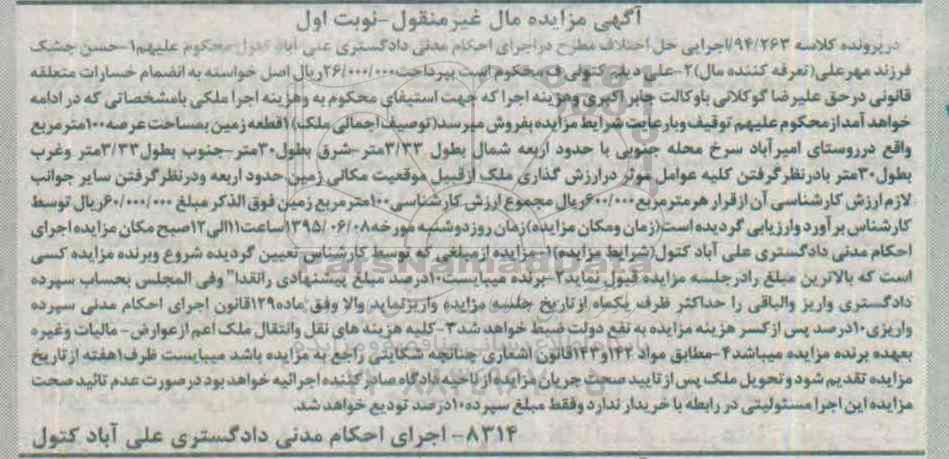 آگهی مزایده مال غیرمنقول-نوبت اول
درپرونده کلاسه ۹۴/۲۶۳/اجرایی حل اختلاف مطرح دراجرای احکام مدنی دادگستری علی آباد کتول محکوم علیهم۱-حسن جشک
فرزند مهرعلی(تعرفه کننده مال)۲-علی دیلم کتولی ف محکوم است بپرداخت۲۶/۰۰۰/۰۰۰ریال اصل خواسته به انضمام خسارات متعلقه
قانونی درحق علیرضا گوکلانی باوکالت جابر اکبری وهزینه اجرا که جهت استیفای محکوم به وهزینه اجرا ملکی بامشخصاتی که در ادامه
خواهد آمدازمحکوم علیهم توقیف وبارعایت شرایط مزایده بفروش میرسد(توصیف اجمالی ملک)۱قطعه زمین بمساحت عرصه۱۰۰مترمربع
واقع درروستای امیرآباد سرخ محله جنوبی با حدود اربعه شمال بطول ۳/۳۳متر-شرق بطول۳۰متر-جنوب بطول۳/۳۳متر وغرب
بطول۳۰متر بادرنظرگرفتن کلیه عوامل موثر درارزش گذاری ملک ازقبیل موقعیت مکانی زمین حدود اربعه ودرنظرگرفتن سایر جوانب
لازم ارزش کارشناسی آن ازقرار هرمترمربع۶۰۰/۰۰۰ریال مجموع ارزش کارشناسی۱۰۰مترمربع زمین فوق الذکر مبلغ ۶۰/۰۰۰/۰۰۰ریال توسط
کارشناس برآورد وارزیابی گردیده است(زمان ومکان مزایده)زمان روزدوشنبه مورخه۱۳۹۵/۰۶/۰۸ساعت۱۱الی۱۲صبح مکان مزایده اجرای
احکام مدنی دادگستری علی آباد کتول(شرایط مزایده)۱-مزایده ازمبلغی که توسط کارشناس تعیین گردیده شروع وبرنده مزایده کسی
است که بالاترین مبلغ رادرجلسه مزایده قبول نماید۲-برنده میبایست۱۰درصد مبلغ پیشنهادی رانقدا" وفی المجلس بحساب سپرده
دادگستری واریز والباقی را حداکثر ظرف یکماه ازتاریخ جلسه مزایده واریزنماید والا وفق ماده۱۲۹قانون اجرای احکام مدنی سپرده
واریزی۱۰درصد پس ازکسر هزینه مزایده به نفع دولت ضبط خواهد شد۳-کلیه هزینه های نقل وانتقال ملک اعم ازعوارض-مالیات وغیره
بعهده برنده مزایده میباشد۴-مطابق مواد ۱۴۲و۱۴۳قانون اشعاری چنانچه شکایتی راجع به مزایده باشد میبایست ظرف۱هفته ازتاریخ
مزایده تقدیم شود وتحویل ملک پس ازتایید صحت جریان مزایده از ناحیه دادگاه صادرکننده اجرائیه خواهد بود درصورت عدم تائید صحت
مزایده این اجرا مسئولیتی در رابطه با خریدار ندارد وفقط مبلغ سپرده۱۰درصد تودیع خواهد شد.
۸۳۱۴- اجرای احکام مدنی دادگستری علی آباد کتول